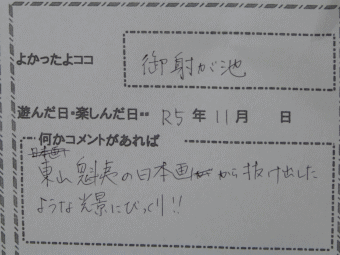 よかったよココ 御射が池
遊んだ日・楽しんだ日‥ R5 年 11 月 日
何かコメントがあれば
東山魁夷の日本画から抜け出した
ような光景にびっくり!!